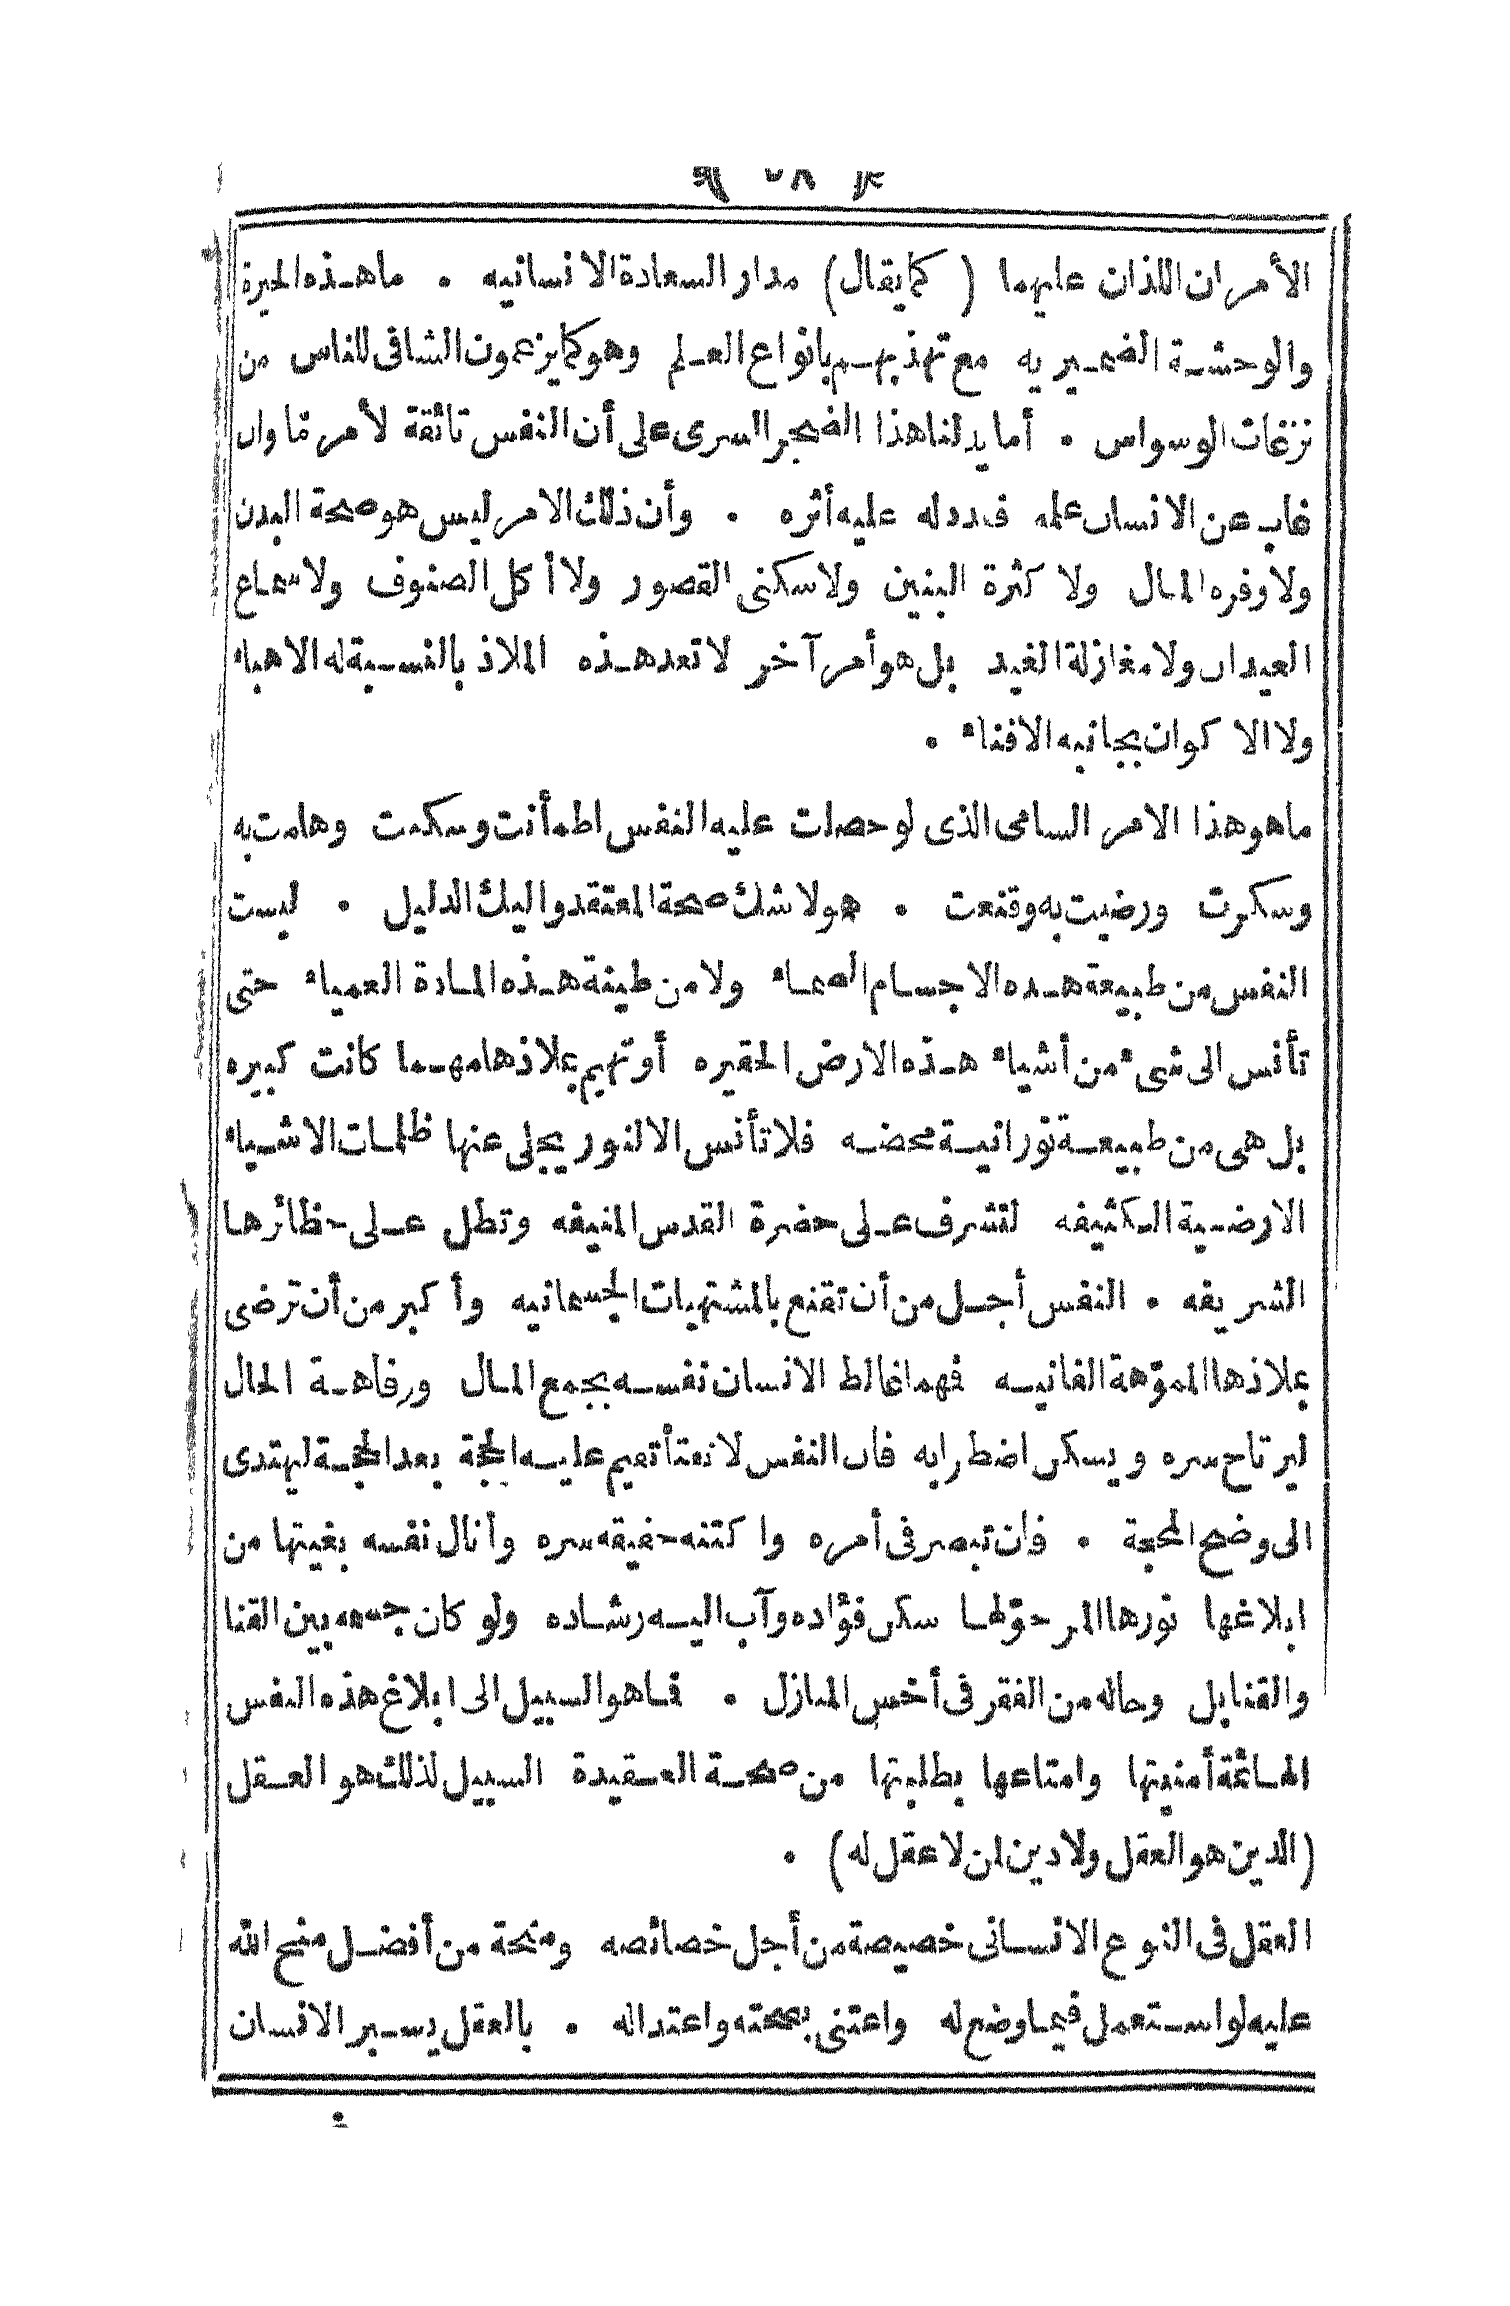 الأمران اللذان عليهما (كما يقال) مدار السعادة الانسانيه . ما هذه الحيرة
والوحشة الضميريه مع تهذبهم بانواع العلم وهو كما يزعمون الشافى للناس من
نزغات الوسواس . أما يدلنا هذا الضجر السرى على أن النفس تائقة لأمر مّا وان
غاب عن الانسان علمه فددله عليه أثره . وأن ذلك الامر ليس هو صحة البدن
ولا وفره المال ولا كثرة البنين ولا سكنى القصور ولا أكل الصنوف ولا سماع
العيدان ولا مغازلة الغيد بل هو أمر آخر لا تعد هذه الملاذ بالنسبة له الا هباء
ولا الا كوان بجانبه الا فناء .
ما هو هذا الامر السامى الذى لو حصلت عليه النفس اطمأنت وسكنت وهامت به
وسكرت ورضيت به وقنعت . هو لا شك صحة المعتقد واليك الدليل . ليست
النفس من طبيعة هذه الاجسام الصماء ولا من طينة هذه المادة العمياء حتى
تأنس الى شىء من أشياء هذه الارض الحقيره أو تهيم بملاذها مهما كانت كبيره
بل هى من طبيعة نورانية محضه فلا تأنس الا لنور يجلى عنها ظلمات الاشياء
الارضية الكثيفه لتشرف على حضرة القدس المنيفه وتطل على حظائرها
الشريفه . النفس أجل من أن تقنع بالمشتهيات الجسمانيه وأكبر من أن ترضى
بملاذها المموّهة الفانيه فهما غالط الانسان نفسه بجمع المال ورفاهة الحال
ليرتاح سره ويسكن اضطرابه فان النفس لا تفتأ تقيم عليه الحجة بعد الحجة ليهتدى
الى وضح المحجة . فان تبصر فى أمره واكتنه حقيقه سره وأنال نفسه بغيتها من
ابلاغها نورها المرجوّ لها سكن فؤاده وآب اليه رشاده ولو كان جسمه بين القنا
والقنابل وحاله من الفقر فى أخس المنازل . فما هو السبيل الى ابلاغ هذه النفس
الهائمة أمنيتها وامتاعها بطلبتها من صحة العقيدة السبيل لذلك هو العقل
(الدين هو العقل ولا دين لمن لا عقل له) .
العقل فى النوع الانسانى خصيصة من أجل خصائصه ومنحة من أفضل منح الله
عليه لو استعمل فيما وضع له واعتنى بصحته واعتداله . بالعقل يسبر الانسان